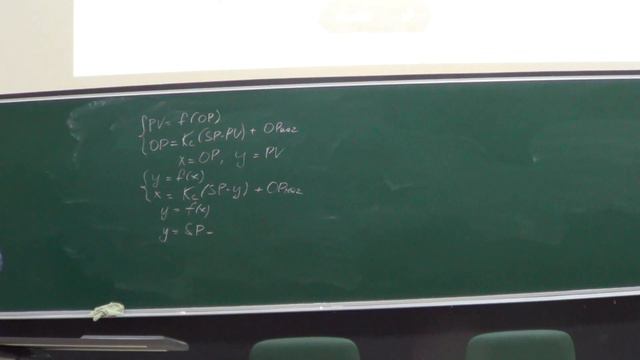 { PV = f(OP)
OP = Kc (SP - PV) + OPнач
x = OP, y = PV
{ y = f(x)
x = Kc (SP - y) + OPнач
y = f(x)
y = SP -